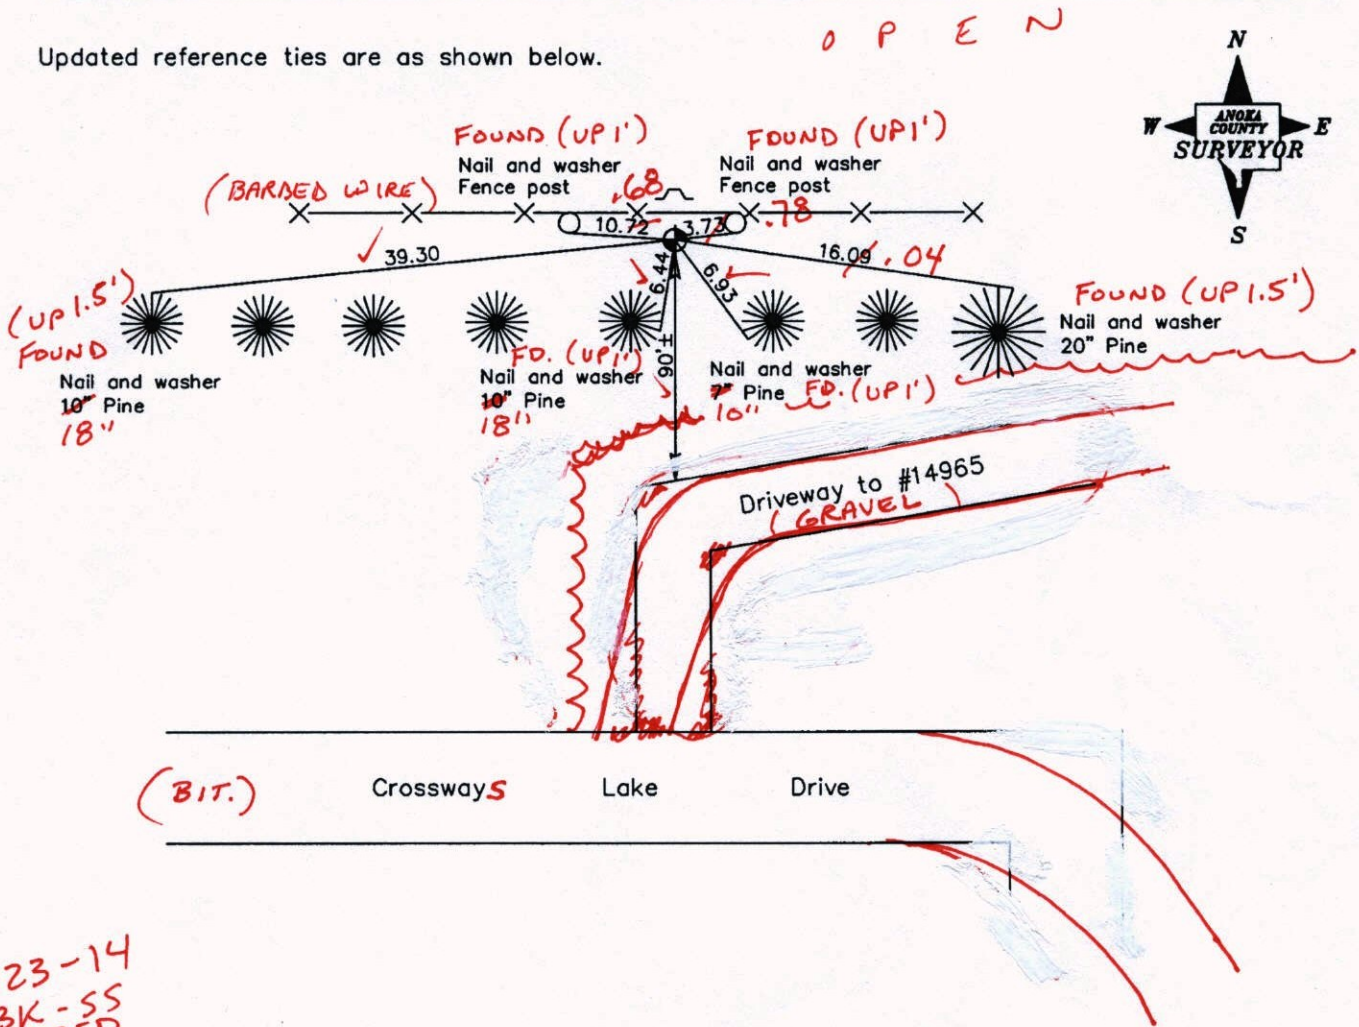 O P E N
Updated reference ties are as shown below.
N
W ANOKA COUNTY E
SURVEYOR
S
FOUND (UP 1')
Nail and washer
Fence post
FOUND (UP 1')
Nail and washer
Fence post
(BARBED WIRE)
.68
.78
10.72
3.73
39.30
16.09
.04
6.44
6.93
90'±
(UP 1.5')
FOUND
Nail and washer
10" Pine
18"
FD. (UP 1')
Nail and washer
10" Pine
18"
Nail and washer
7" Pine FD. (UP 1')
10"
FOUND (UP 1.5')
Nail and washer
20" Pine
Driveway to #14965
(GRAVEL)
(BIT.) Crossways Lake Drive
23-14
BK-SS